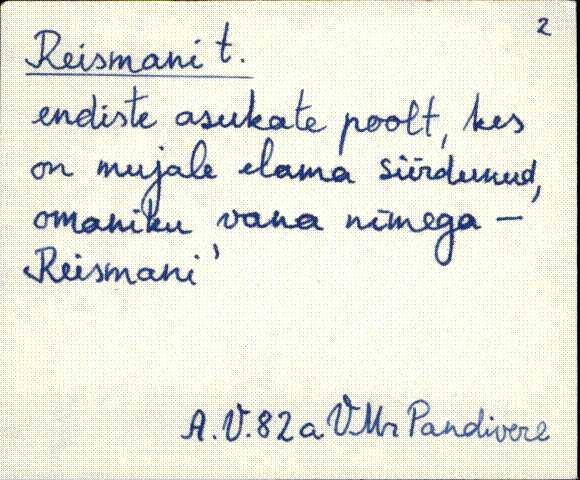 2
Reismani t.
endiste asukate poolt, kes
on mujale elama siirdunud,
omaniku vana nimega –
Reismani'
A.V. 82 a VMr Pandivere